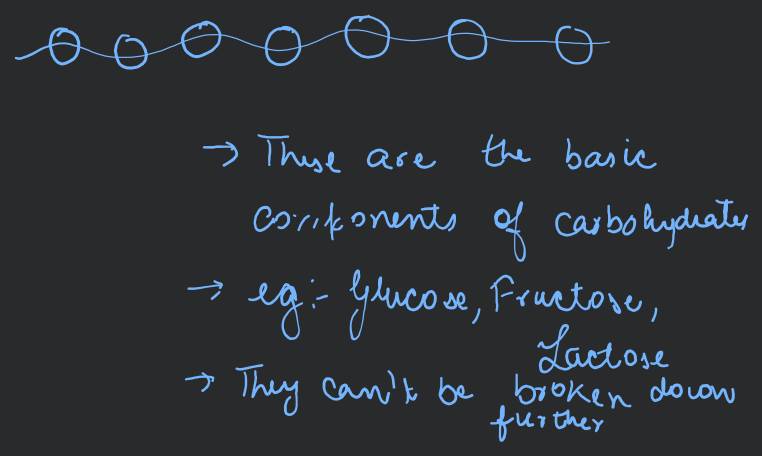 → These are the basic
components of carbohydrates
→ eg:- Glucose, Fructose,
Lactose
→ They can't be broken down
further